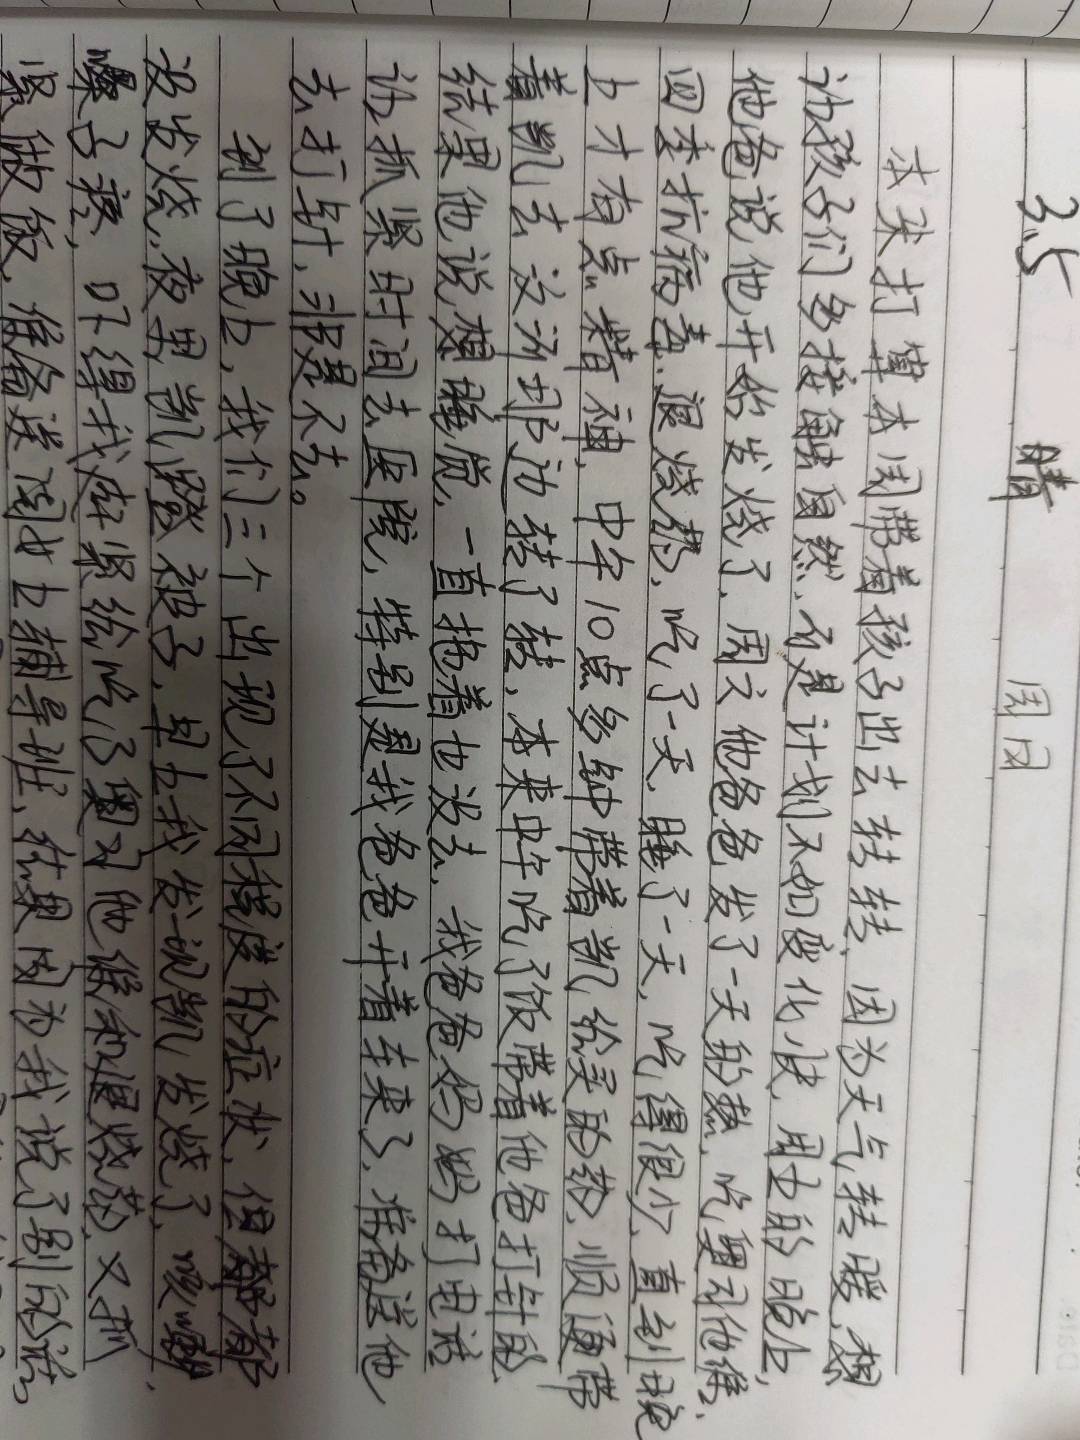 3.5 晴 周日
本来打算本周带着孩子出去转转，因为天气转暖，想
让孩子们多接触自然，但是计划不如变化快，周五的晚上，
他爸说他开始发烧了，周六他爸爸发了一天的热，吃奥司他维、
四季抗病毒、退烧药，吃了一天，睡了一天，吃得很少，直到晚
上才有点精神，中午10点多钟带着凯给买的药，顺便带
着凯去汶河那边转了转，本来中午吃了饭带着他爸打针的
结果他说想睡觉，一直拖着也没去，我爸爸妈妈打电话
让抓紧时间去医院，特别是我爸爸开着车来了，准备送他
去打针，非是不去。
到了晚上，我们三个出现了不同程度的症状，但都都
没发烧，夜里凯蹬被子，早上我发现凯发烧了，
嗓子疼，吓得我赶紧给吃了奥司他维和退烧药，又抓
紧做饭，准备送 上辅导班，结果因为我说了别的话，